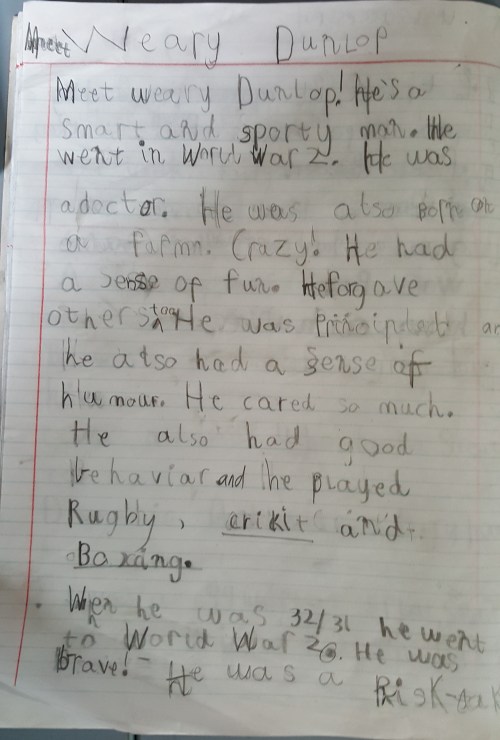 Meet Weary Dunlop
Meet weary Dunlop! He's a
smart and sporty man. He
went in World War 2. He was
a doctor. He was also born on
a farmn. Crazy! He had
a sense of fun. He forgave
others too. He was Principled
he also had a sense of
humour. He cared so much.
He also had good
behaviar and he played
Rugby, crikit and
Boxing.
When he was 32/31 he went
to World War 2. He was
brave! He was a Risk-tak